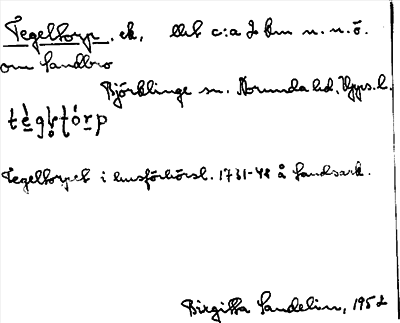 Tegeltorp. ek, utet c:a 2 km n.n.ö.
om Sandbro
Björklinge sn. Norunda hd. Upps.l.
tègḷtórp
Tegeltorpet i husförhörsl. 1731-48 å landsark.
Birgitta Sandelin, 1952